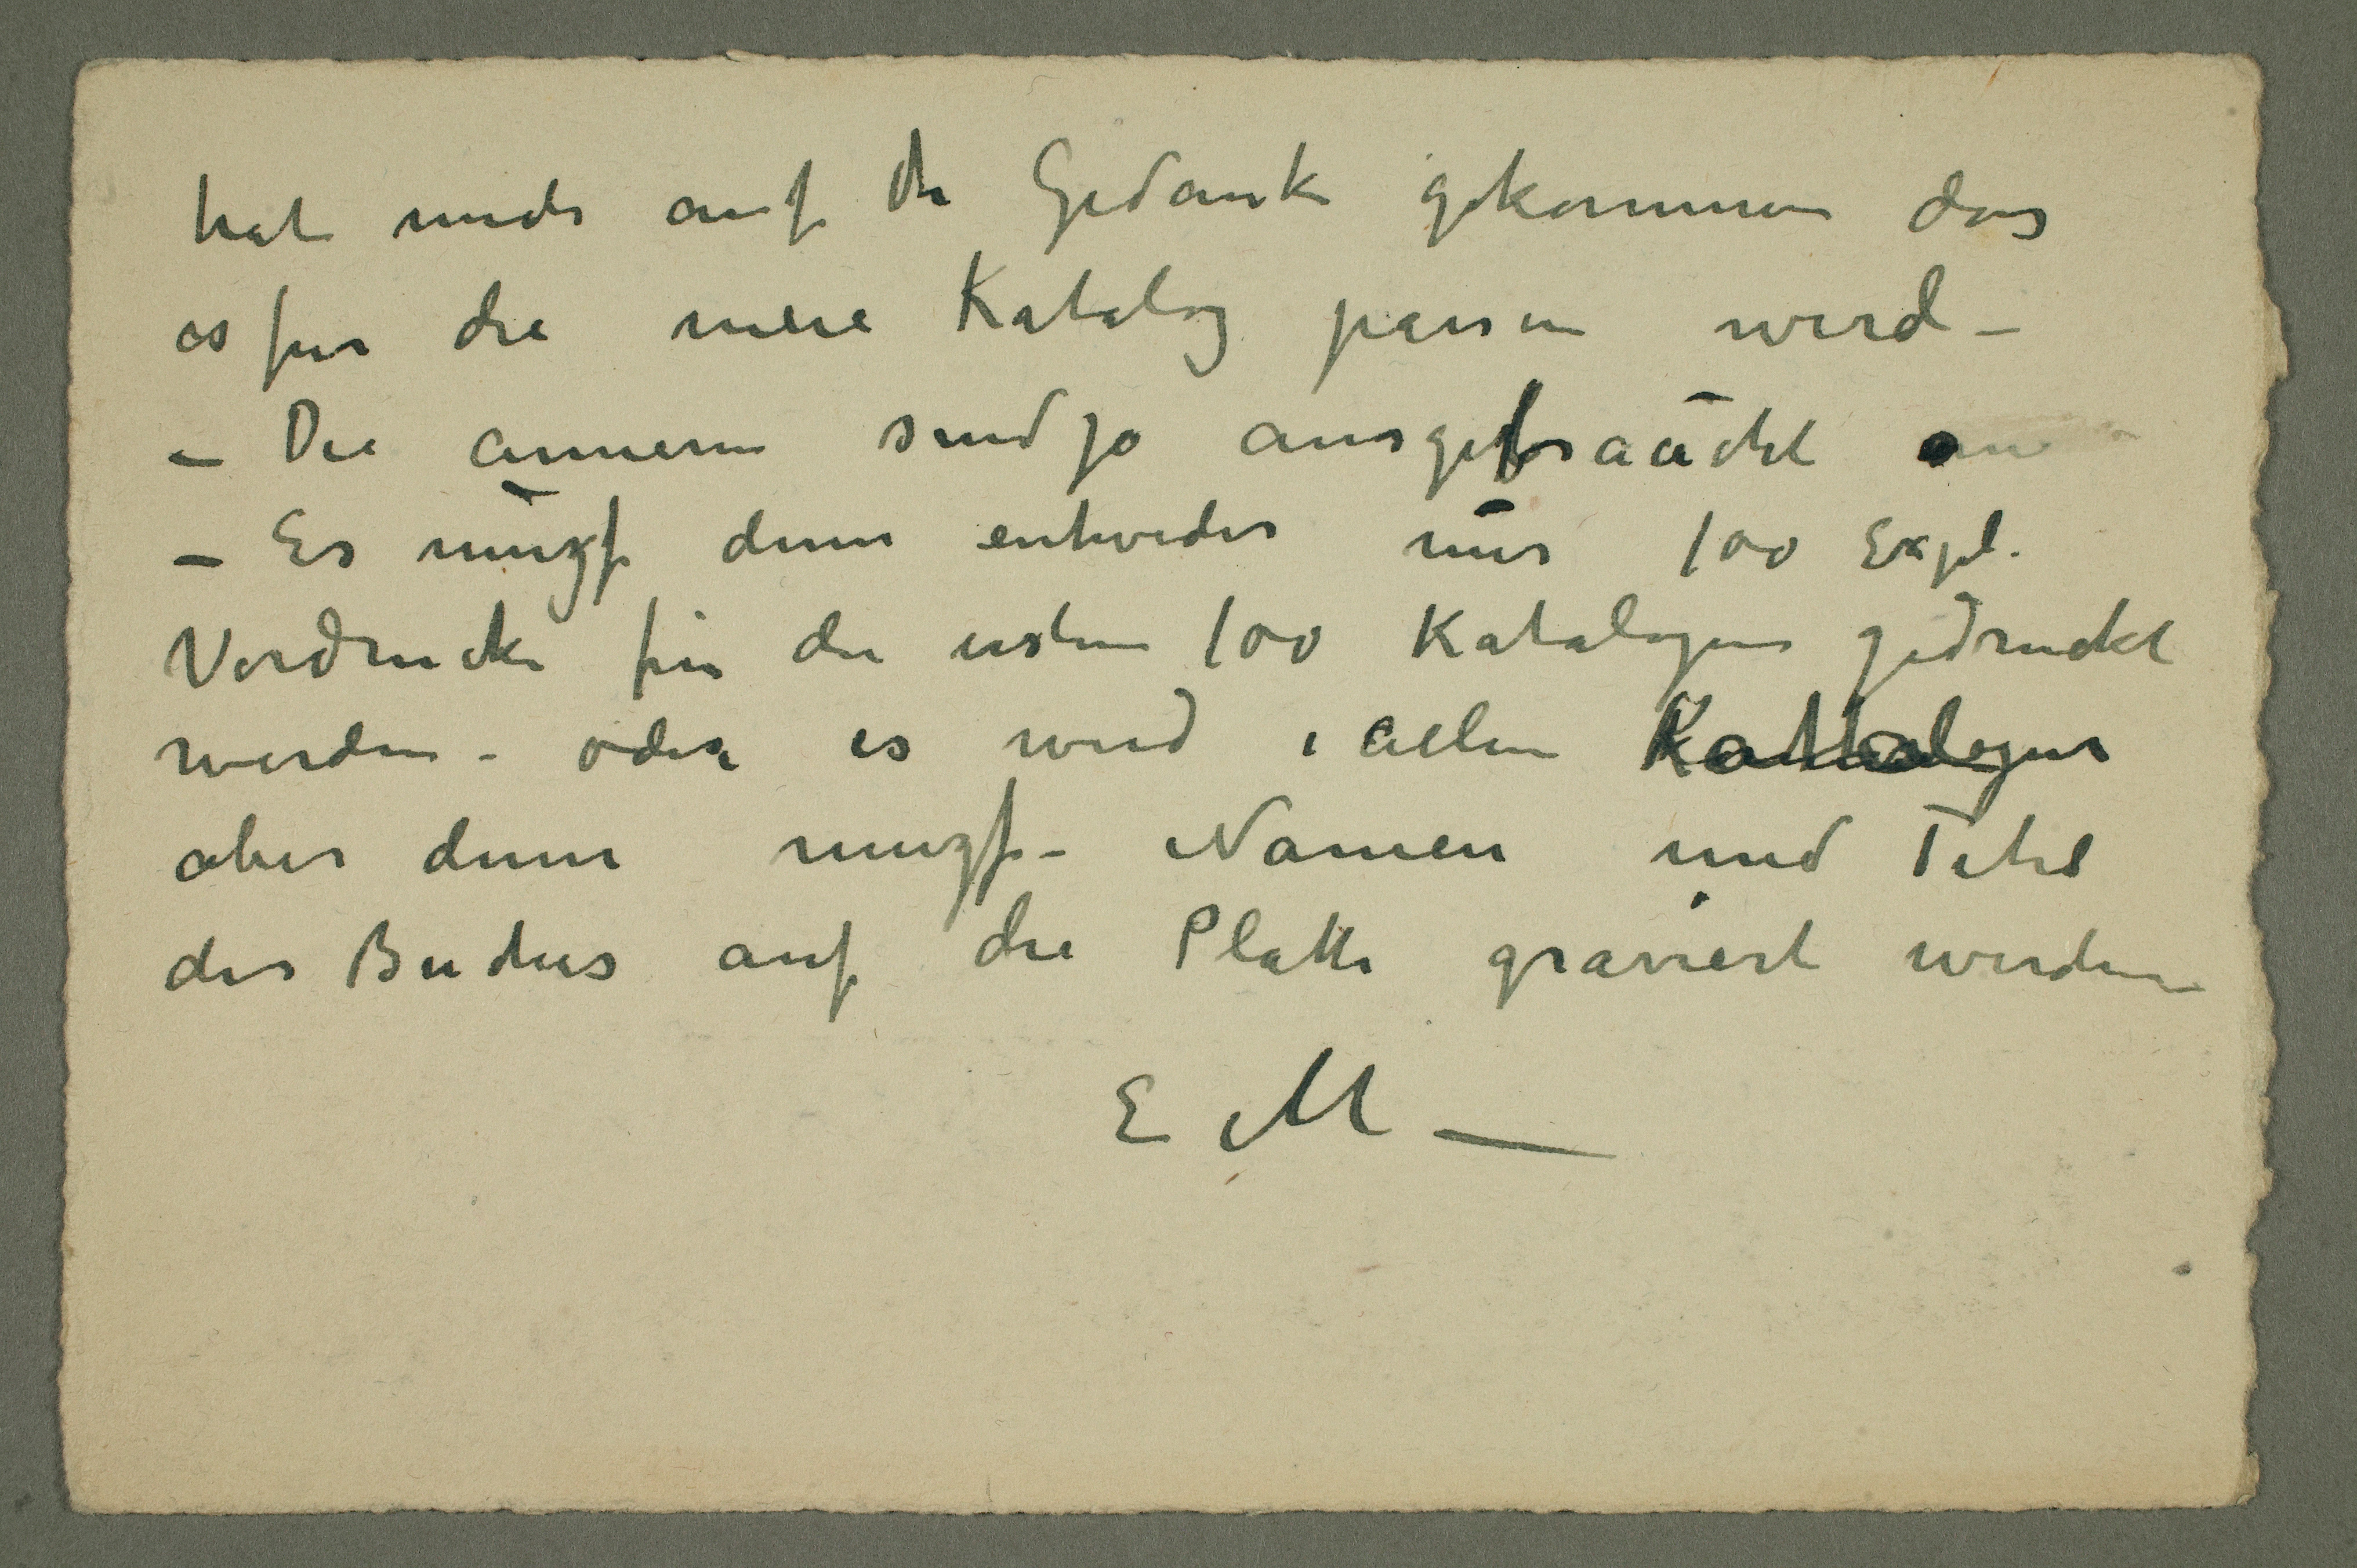 hat mich auf die Gedanke gekommen das
es für die neue Katalog passen wird –
– Die anneren sind ja ausgebraŭcht
– Es muzf denn entweder nŭr 100 Expl.
Vordrucke für die ersten 100 Katalogen gedruckt
werden – oder es wird i allen Kathalogen
aber denn muzf – Namen und Titel
des Buches auf die Platte graviert werden –
E M —